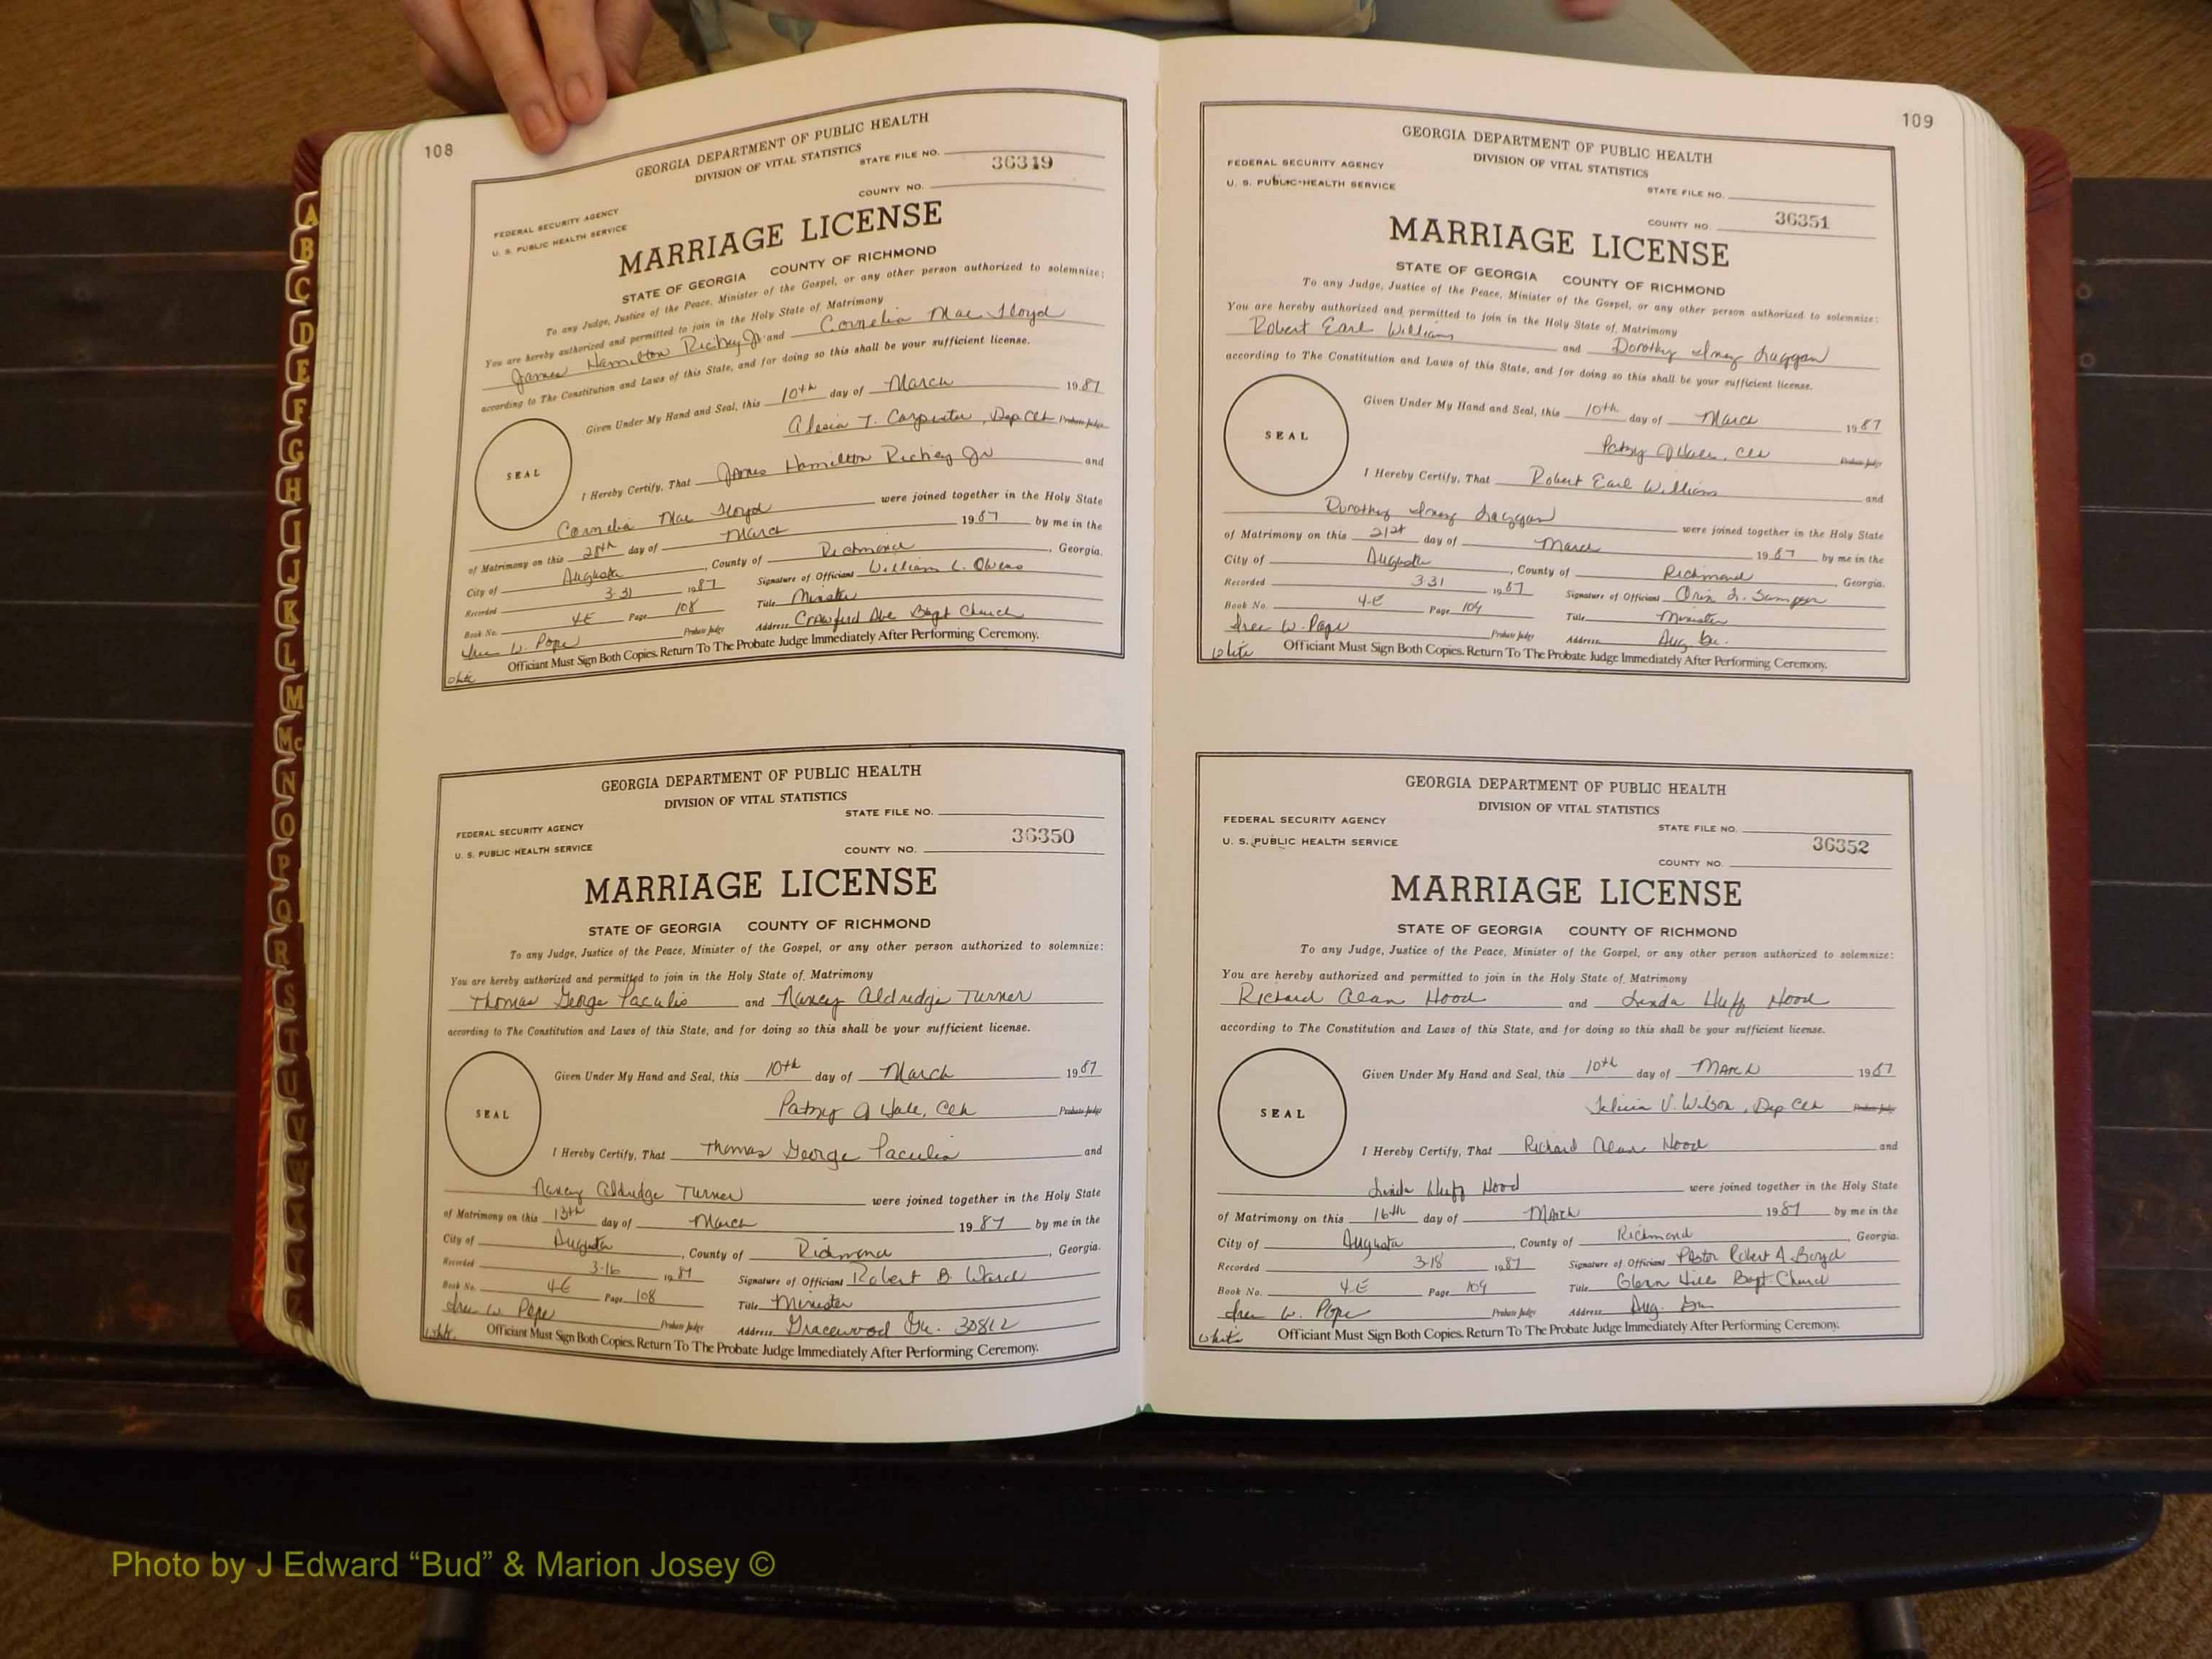 108
GEORGIA DEPARTMENT OF PUBLIC HEALTH
DIVISION OF VITAL STATISTICS
STATE FILE NO. 36319
COUNTY NO.
FEDERAL SECURITY AGENCY
U. S. PUBLIC HEALTH SERVICE
MARRIAGE LICENSE
STATE OF GEORGIA COUNTY OF RICHMOND
To any Judge, Justice of the Peace, Minister of the Gospel, or any other person authorized to solemnize:
You are hereby authorized and permitted to join in the Holy State of Matrimony
James Hamilton Richey Jr and Cornelia Mae Floyd
according to The Constitution and Laws of this State, and for doing so this shall be your sufficient license.
Given Under My Hand and Seal, this 10th day of March 1987
Alesia T. Carpenter, Dep Clk Probate Judge
SEAL
I Hereby Certify, That James Hamilton Richey Jr and
Cornelia Mae Floyd were joined together in the Holy State
of Matrimony on this 28th day of March 1987 by me in the
City of Augusta, County of Richmond, Georgia.
Recorded 3-31 1987 Signature of Officiant William L. Owens
Book No. 4E Page 108 Title Minister
W. Pope Probate Judge Address Crawford Ave Bapt Church
Officiant Must Sign Both Copies. Return To The Probate Judge Immediately After Performing Ceremony.
White
GEORGIA DEPARTMENT OF PUBLIC HEALTH
DIVISION OF VITAL STATISTICS
STATE FILE NO.
FEDERAL SECURITY AGENCY
36350
U. S. PUBLIC HEALTH SERVICE
COUNTY NO.
MARRIAGE LICENSE
STATE OF GEORGIA COUNTY OF RICHMOND
To any Judge, Justice of the Peace, Minister of the Gospel, or any other person authorized to solemnize:
You are hereby authorized and permitted to join in the Holy State of Matrimony
Thomas George Paculis and Nancy Aldredge Turner
according to The Constitution and Laws of this State, and for doing so this shall be your sufficient license.
Given Under My Hand and Seal, this 10th day of March 1987
Patsy A Hall, Clk Probate Judge
SEAL
I Hereby Certify, That Thomas George Paculis and
Nancy Aldredge Turner were joined together in the Holy State
of Matrimony on this 13th day of March 1987 by me in the
City of Augusta, County of Richmond, Georgia.
Recorded 3-16 1987 Signature of Officiant Robert B. Ward
Book No. 4E Page 108 Title Minister
W. Pope Probate Judge Address Gracewood Ga. 30812
White
Officiant Must Sign Both Copies. Return To The Probate Judge Immediately After Performing Ceremony.
109
GEORGIA DEPARTMENT OF PUBLIC HEALTH
DIVISION OF VITAL STATISTICS
FEDERAL SECURITY AGENCY
U. S. PUBLIC HEALTH SERVICE
STATE FILE NO.
COUNTY NO. 36351
MARRIAGE LICENSE
STATE OF GEORGIA COUNTY OF RICHMOND
To any Judge, Justice of the Peace, Minister of the Gospel, or any other person authorized to solemnize:
You are hereby authorized and permitted to join in the Holy State of Matrimony
Robert Earl Williams and Dorothy Inez
according to The Constitution and Laws of this State, and for doing so this shall be your sufficient license.
Given Under My Hand and Seal, this 10th day of March 1987
Patsy A Hall, Clk Probate Judge
SEAL
I Hereby Certify, That Robert Earl Williams and
Dorothy Inez were joined together in the Holy State
of Matrimony on this 21st day of March 1987 by me in the
City of Augusta, County of Richmond, Georgia.
Recorded 3-31 1987 Signature of Officiant
Book No. 4-E Page 109 Title Minister
W. Pope Probate Judge Address Aug. Ga.
White
Officiant Must Sign Both Copies. Return To The Probate Judge Immediately After Performing Ceremony.
GEORGIA DEPARTMENT OF PUBLIC HEALTH
DIVISION OF VITAL STATISTICS
FEDERAL SECURITY AGENCY
STATE FILE NO.
U. S. PUBLIC HEALTH SERVICE
36352
COUNTY NO.
MARRIAGE LICENSE
STATE OF GEORGIA COUNTY OF RICHMOND
To any Judge, Justice of the Peace, Minister of the Gospel, or any other person authorized to solemnize:
You are hereby authorized and permitted to join in the Holy State of Matrimony
Richard Alan Hood and Linda Huff Hood
according to The Constitution and Laws of this State, and for doing so this shall be your sufficient license.
Given Under My Hand and Seal, this 10th day of March 1987
Felicia V. Wilson, Dep Clk Probate Judge
SEAL
I Hereby Certify, That Richard Alan Hood and
Linda Huff Hood were joined together in the Holy State
of Matrimony on this 16th day of March 1987 by me in the
City of Augusta, County of Richmond, Georgia.
Recorded 3-18 1987 Signature of Officiant Pastor Robert A. Boyd
Book No. 4-E Page 109 Title Glenn Hills Bapt. Church
W. Pope Probate Judge Address Aug. Ga
White
Officiant Must Sign Both Copies. Return To The Probate Judge Immediately After Performing Ceremony.
A
B
C
D
E
F
G
H
I
J
K
L
M
Mc
N
O
P
Q
R
S
T
U
V
W
Photo by J Edward “Bud” & Marion Josey ©